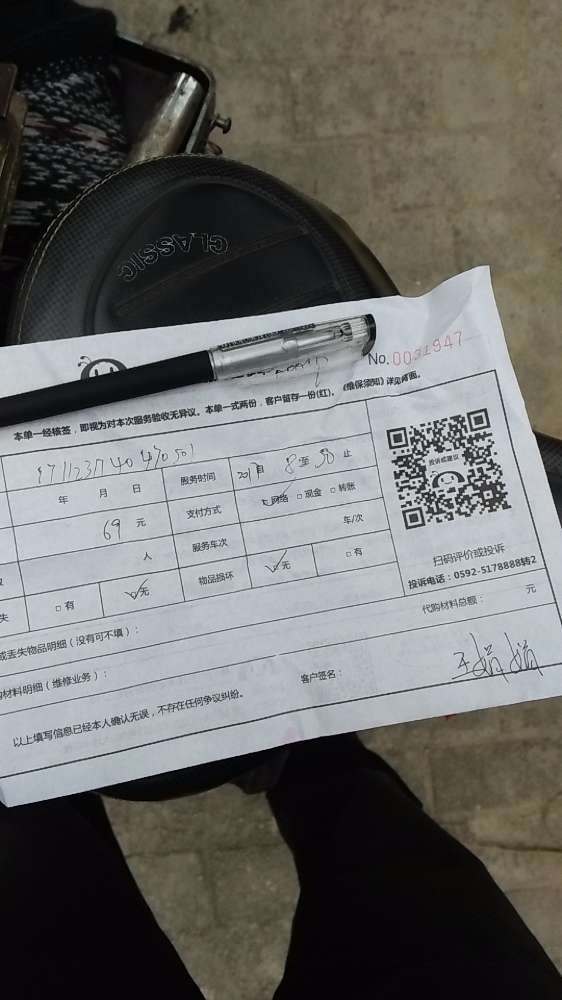 CLASSIC
No.0031947
本单一经核签，即视为对本次服务验收无异议。本单一式两份，客户留存一份(红)。《维保须知》详见背面。
年 月 日
服务时间
自 8 至 止
投诉或建议
69 元
支付方式
网络 现金 转账
人
服务车次
车/次
失
有
无
物品损坏
无
有
扫码评价或投诉
投诉电话：0592-5178888转2
或丢失物品明细（没有可不填）：
代购材料总额：
元
材料明细（维修业务）：
客户签名：
王娟娟
以上填写信息已经本人确认无误，不存在任何争议纠纷。